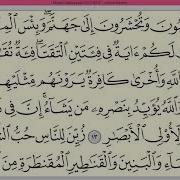 وَتُحْشَرُونَ إِلَىٰ جَهَنَّمَ وَبِئْسَ
لَكُمْ ءَايَةٌ فِى فِئَتَيْنِ ٱلْتَقَتَا فِئَةٌ
ٱللَّهِ وَأُخْرَىٰ كَافِرَةٌ يَرَوْنَهُم مِّثْلَيْهِمْ
ٱللَّهُ يُؤَيِّدُ بِنَصْرِهِۦ مَن يَشَآءُ إِنَّ فِى
لِّأُو۟لِى ٱلْأَبْصَٰرِ ١٣ زُيِّنَ لِلنَّاسِ حُبُّ
وَٱلْبَنِينَ وَٱلْقَنَٰطِيرِ ٱلْمُقَنطَرَةِ مِنَ